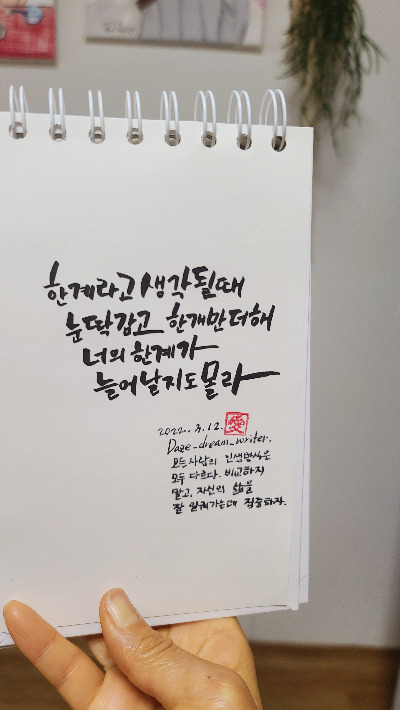 한계라고 생각될때
눈 딱감고 한개만 더해
너의 한계가
늘어날지도 몰라
2022. 3. 12. 愛
Daze_dream_writer.
모든사람의 인생방식은
모두 다르다. 비교하지
말고, 자신의 삶을
잘 일궈가는데 집중하자.